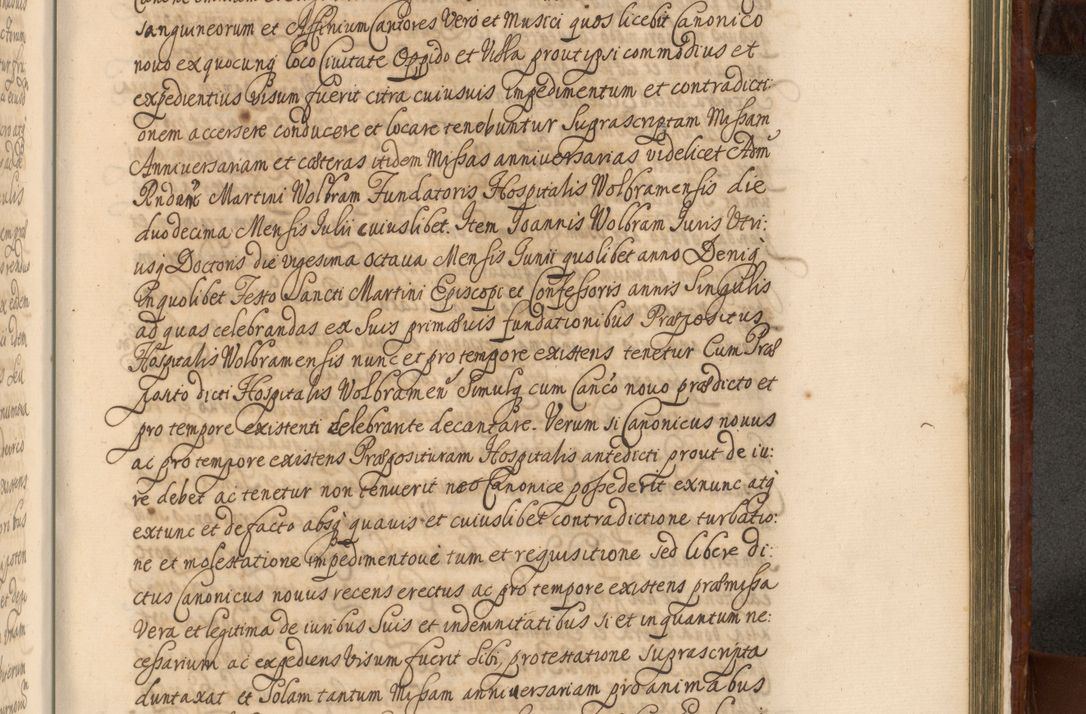 sanguineorum et Affinium Cantores Vero et Musici quos licebit Canonico
novo ex quocunq loco Civitate Oppido et Villa prout ipsi commodius et
expedientius visum fuerit citra cuiusuis impedimentum et contradicti:
onem accersere conducere et locare tenebuntur Suprascriptam Missam
Anniversariam et cæteras itidem Missas anniversarias videlicet Adm
Rndi Martini Wolbram Fundatoris Hospitalis Wolbramensis die
duodecima Mensis Julii cuiuslibet. Item Joannis Wolbram Juris Vtri:
usq Doctoris die vigesima octava Mensis Junii quolibet anno Deniq
in quolibet Festo Sancti Martini Episcopi et Confessoris annis Singulis
ad quas celebrandas ex Suis primævis fundationibus Præpositus
Hospitalis Wolbramensis nunc et pro tempore existens tenetur Cum Præ
posito dicti Hospitalis Wolbramen Simulq cum Canco novo prædicto et
pro tempore existenti celebrante decantare. Verum si Canonicus novus
ac pro tempore existens Præposituram Hospitalis antedicti prout de iu:
re debet ac tenetur non tenuerit nec Canonice possederit exnunc atq
extunc et de facto absq quavis et cuiuslibet contradictione turbatio:
ne et molestatione impedimentove tum et requisitione sed libere di:
ctus Canonicus novus recens erectus ac pro tempore existens præmissa
Vera et legitima de iuribus Suis et indemnitatibus si et in quantum ne:
cessarium ac expediens visum fuerit Sibi, protestatione Suprascripta
duntaxat et Solam tantum Missam anniversariam pro animabus